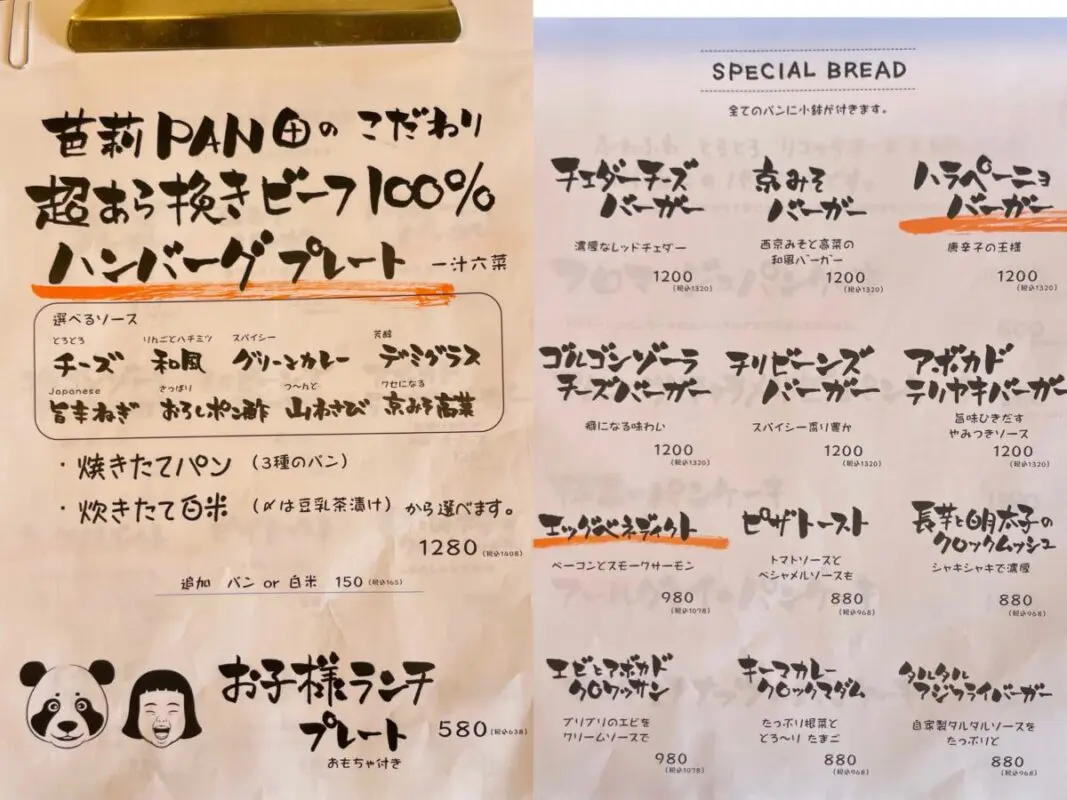 芭莉PAN田のこだわり
超あら挽きビーフ100%
ハンバーグプレート 一汁六菜
選べるソース
とろとろ りんごとハチミツ スパイシー 芳醇
チーズ 和風 グリーンカレー デミグラス
Japanese さっぱり つ〜んと クセになる
旨辛ねぎ おろしポン酢 山わさび 京みそ高菜
・焼きたてパン (3種のパン)
・炊きたて白米 (〆は豆乳茶漬け) から選べます。
1280(税込1408)
追加 パン or 白米 150(税込165)
お子様ランチ
プレート 580(税込638)
おもちゃ付き
SPECIAL BREAD
全てのパンに小鉢が付きます。
チェダーチーズ
バーガー
濃厚なレッドチェダー
1200
(税込1320)
京みそ
バーガー
西京みそと高菜の
和風バーガー
1200
(税込1320)
ハラペーニョ
バーガー
唐辛子の王様
1200
(税込1320)
ゴルゴンゾーラ
チーズバーガー
癖になる味わい
1200
(税込1320)
チリビーンズ
バーガー
スパイシー香り豊か
1200
(税込1320)
アボカド
テリヤキバーガー
旨味ひきだす
やみつきソース
1200
(税込1320)
エッグベネディクト
ベーコンとスモークサーモン
980
(税込1078)
ピザトースト
トマトソースと
ベシャメルソースも
880
(税込968)
長芋と明太子の
クロックムッシュ
シャキシャキで濃厚
880
(税込968)
エビとアボカド
クロワッサン
プリプリのエビを
クリームソースで
980
(税込1078)
キーマカレー
クロックマダム
たっぷり根菜と
とろ〜り たまご
880
(税込968)
タルタル
アジフライバーガー
自家製タルタルソースを
たっぷりと
880
(税込968)